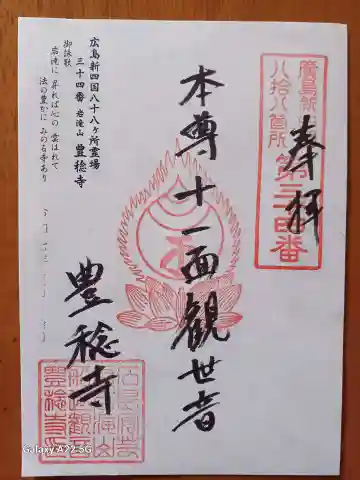 奉拝
廣島新
八拾八箇所
第三四番
本尊十一面観世音
豊稔寺
広島新四国八十八ヶ所霊場
三十四番 岩滝山 豊稔寺
御詠歌
岩滝に 昇れば心の 雲はれて
法の豊かに みのる寺あり
豊稔寺
Galaxy A22 5G